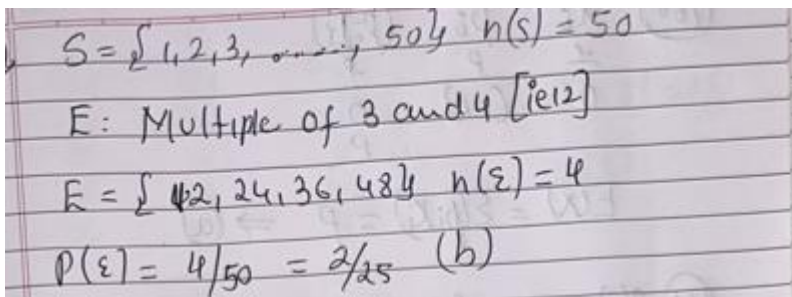 S = {1, 2, 3, ......, 50} n(s) = 50
E: Multiple of 3 and 4 [ie12]
E = {12, 24, 36, 48} n(ε) = 4
P(ε) = 4/50 = 2/25 (b)